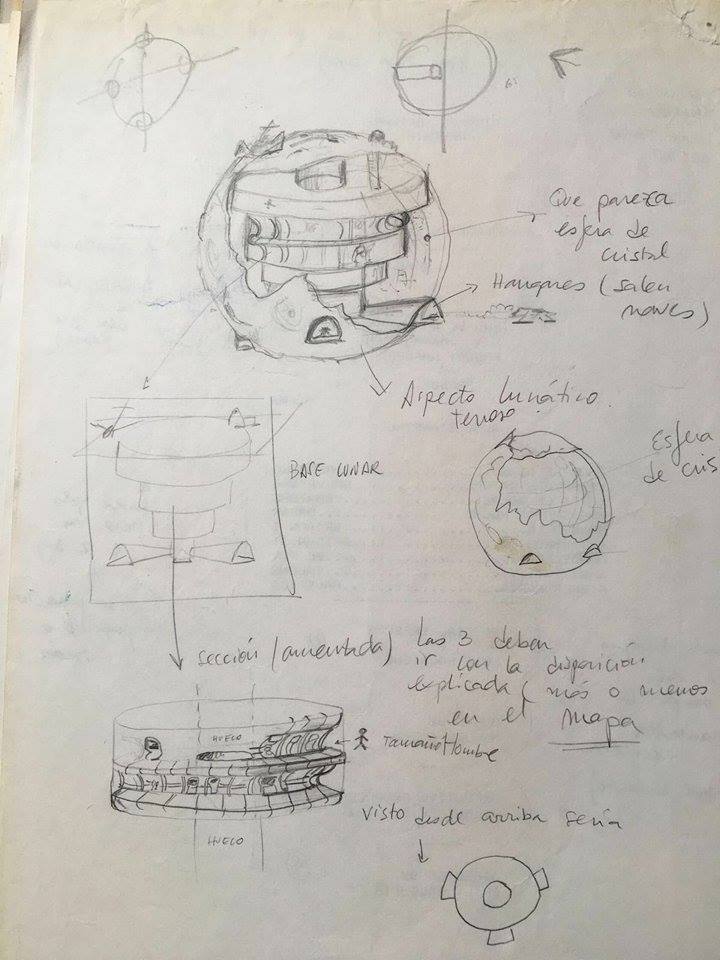 Que parezca
esfera de
cristal
Hangares (salen
naves)
Aspecto lunático
terroso
Esfera
de cris
BASE LUNAR
sección (aumentada)
Las 3 deben
ir con la disposición
explicada (más o menos
en el mapa
HUECO
Tamaño Hombre
HUECO
visto desde arriba sería